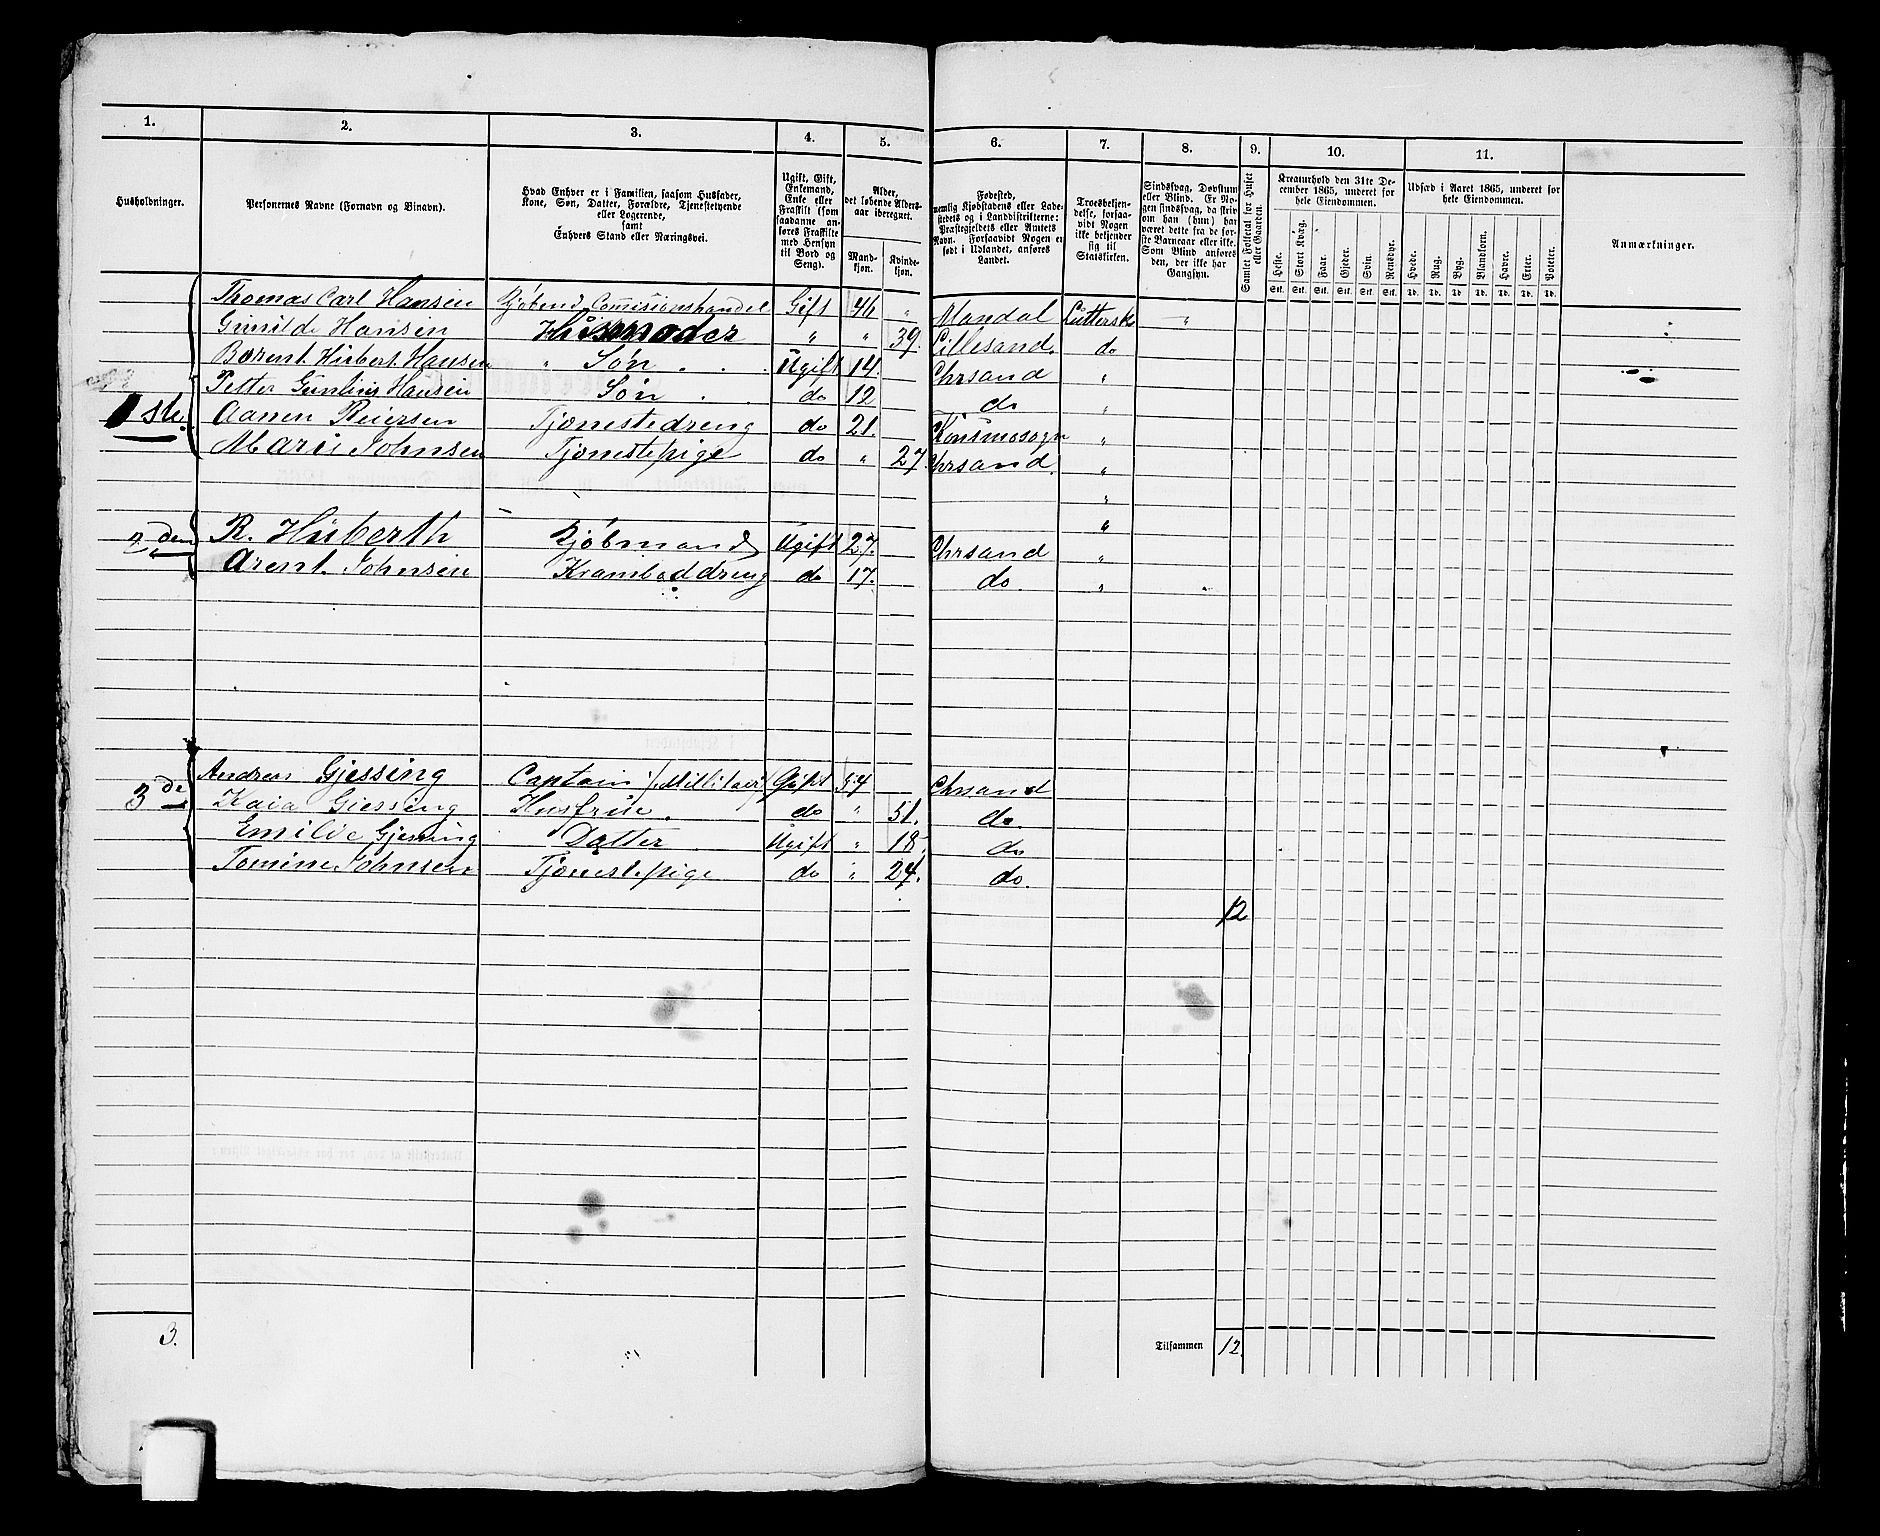 1. 2. 3. 4. 5. 6. 7. 8. 9. 10. 11.
Husholdninger.
Personernes Navne (Fornavn og Binavn).
Hvad Enhver er i Familien, saasom Husfader,
Kone, Søn, Datter, Forældre, Tjenestetyende
eller Logerende,
samt
Enhvers Stand eller Næringsvei.
Ugift, Gift,
Enkemand,
Enke eller
Fraskilt (som
saadanne an-
føres Fraskilte
med Hensyn
til Bord og
Seng).
Alder,
det løbende Alders-
aar iberegnet.
Mand-
kjøn.
Kvinde-
kjøn.
Fødested,
nemlig Kjøbstadens eller Lade-
stedets og i Landdistrikterne:
Præstegjeldets eller Amtets
Navn. Forsaavidt Nogen er
født i Udlandet, anføres
Landet.
Troesbekjen-
delse, forsaa-
vidt Nogen
ikke bekjender
sig til
Statskirken.
Sindssvag, Døvstum
eller Blind. Er No-
gen sindssvag, da skriv
om han (hun) har
været dette fra de før-
ste Barneaar eller ikke.
Som Blind anføres
den, der ikke har
Gangsyn.
Samlet Folketal for Huset
eller Gaarden.
Kreaturhold den 31te De-
cember 1865, underet for
hele Eiendommen.
Heste. Stort Kvæg. Faar. Gjeder. Svin. Rensdyr.
Stk. Stk. Stk. Stk. Stk. Stk.
Udsæd i Aaret 1865, underet for
hele Eiendommen.
Hvede. Rug. Byg. Blandkorn. Havre. Erter. Poteter.
Td. Td. Td. Td. Td. Td. Td.
Anmærkninger.
Thomas Carl Hansen Kjøbmd, Comisionshandel Gift 46 " Mandal Lutterske "
Gunilde Hansen Husmoder " " 39. Lillesand. do
Berent Hubert Hansen " Søn . . . Ugift 14. Chrsand "
Petter Hansen Søn . . do 12 do "
1ste Aanen Reiersen Tjenestedreng do 21. Konsmosogn "
Marie Johnsen Tjenestepige do " 27 Chrsand. "
"
"
2den R. Huberth Kjøbmand Ugift 27. Chrsand "
Arent Johnsen Kramboddreng do 17. do. "
3de Andreas Gjessing Captain (Millitair) Gift 54 Chrsand
Kaia Giessing Husfrue. do " 51. do.
Emilie Gjessing Datter Ugift " 18. do
Tomine Johnsen Tjenestepige do " 24. do.
12
3.
Tilsammen 12.